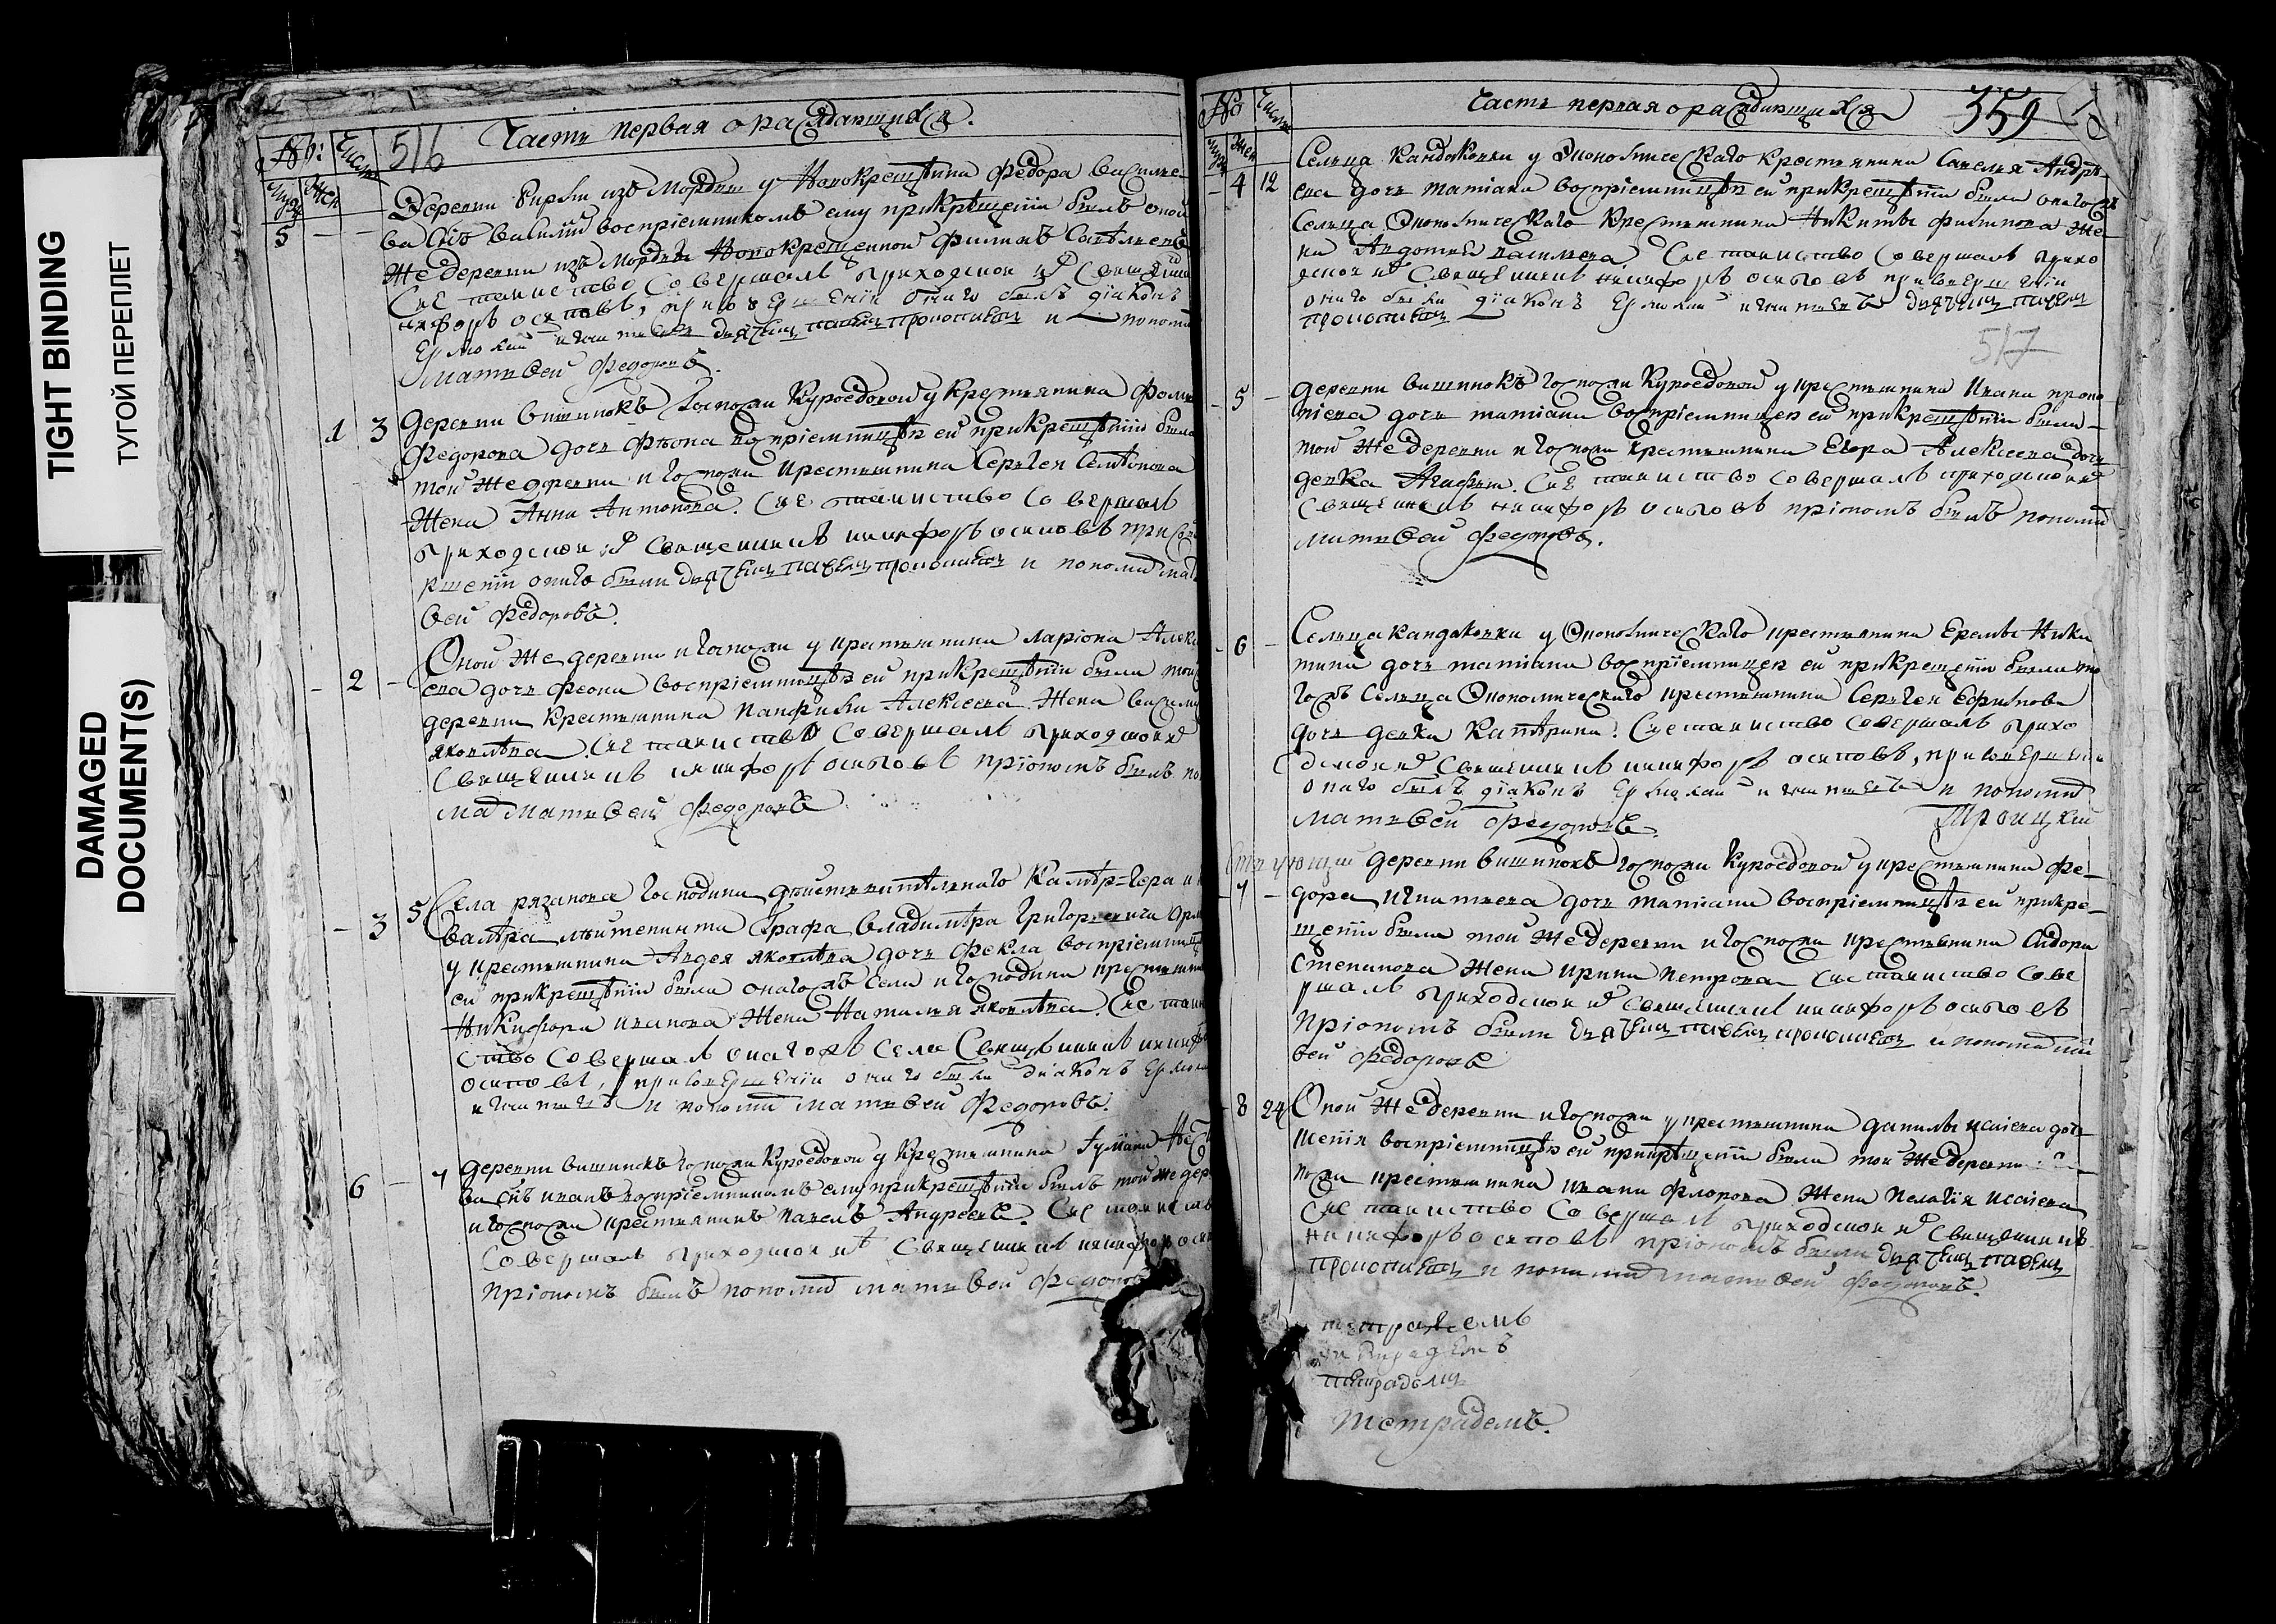 TIGHT BINDING
ТУГОЙ ПЕРЕПЛЕТ
DAMAGED
DOCUMENT(S)
ДОКУМЕНТ(Ы) ПОВРЕЖДЕН
№: Числа 516 Часть первая о раждающихся.
муж жен
Деревни из Мордвы у Новокрещена Федора Василье
5 ва сын Василий восприемником ему при крещении был оной
же деревни из Мордвы Новокрещенной Филипъ
Сие таинство совершалъ приходской Священникъ
никифоръ осиповъ, при совершении онаго былъ диаконъ
Ермолай игнатьевъ дьячекъ павелъ прокопьевъ и понома
Матвей Федоровъ.
1 3 деревни вишинокъ Госпожи Куроедовой у крестьянина Фом
Федорова дочь Феона восприемницею ей при крещении была
той же деревни и госпожи крестьянина Сергея
Жена Анна Антонова. Сие таинство совершалъ
приходской Священникъ никифоръ осиповъ при сове
ршении онаго были дьячекъ павелъ прокопьевъ и пономарь мат
вей Федоровъ.
Оной же деревни и госпожи у крестьянина лариона Алек
2 ева дочь феона восприемницею ей при крещении была той
деревни крестьянина Панфила Алексеева Жена васили
яковлева. Сие таинство совершалъ приходской
Священникъ никифоръ осиповъ при ономъ былъ по
марь Матвей Федоровъ
3 5 Села рязанова Господина действительнаго Камер-гера и к
валера Графа Владимера Григорьевича Орл
у крестьянина Авдея яковлева дочь Фекла восприемниц
ей при крещении была онагожъ села и господина крестьяни
Никифора иванова Жена Наталья яковлева. Сие таин
ство совершалъ онагожъ села Священникъ никифо
осиповъ, при совершении онаго были диаконъ Ермола
игнатьевъ и пономарь матвей Федоровъ.
деревни вишинокъ госпожи Куроедовой у крестьянина
6 7 ва сын иванъ восприемникомъ ему при крещении былъ той же дер
и госпожи крестьянинъ павелъ Андреевъ. Сие таинств
совершалъ приходской Священникъ никифоръ оси
при ономъ былъ пономарь матвей Федоровъ
№ Числа Часть первая о раждающихся 359
муж жен
Сельца Кандаковки у Экономическаго крестьянина Савелья Андре
4 12 ева дочь татиана восприемницею ей при крещении была онагожъ
сельца Экономическаго крестьянина Никиты Филипова же
на Авдотья васильева Сие таинство совершалъ прихо
дской Священникъ никифоръ осиповъ при совершении
онаго были диаконъ Ермолай игнатьевъ дьячекъ павелъ
прокопьевъ
517
5 деревни вишинокъ госпожи Куроедовой у крестьянина Ивана проко
пиева дочь татиана восприемницею ей при крещении была
той же деревни и госпожи крестьянина Егора Алексеева дочь
девка Агафья. Сие таинство совершалъ приходской
Священникъ никифоръ осиповъ при ономъ былъ пономарь
Матвей Федоровъ.
6 Сельца кандаковки у Экономическаго крестьянина Еремы Ники
тина дочь татиана восприемницею ей при крещении была то
гожъ сельца Экономическаго крестьянина Сергея Ефимова
дочь девка Катерина. Сие таинство совершалъ прихо
дской Священникъ никифоръ осиповъ, при совершении
онаго былъ диаконъ Ермолай игнатьевъ и пономарь
матвей федоровъ. Троицкий
деревни вишинокъ госпожи Куроедовой у крестьянина фе
7 дора игнатьева дочь татиана восприемницею ей при кре
щении была той же деревни и госпожи крестьянина Сидора
степанова жена ирина петрова Сие таинство сове
ршалъ приходской Священникъ никифоръ осиповъ
при ономъ были дьячекъ павелъ прокопьевъ и пономарь мат
вей федоровъ
8 24 Оной же деревни и госпожи у крестьянина данилы исаиева дочь
восприемницею ей при крещении была той же деревни
крестьянина ивана флорова Жена пелагия исаиева
Сие таинство совершалъ приходской Священникъ
никифоръ осиповъ при ономъ были дьячекъ павелъ
прокопьевъ и пономарь матвей федоровъ.
тетрадемъ
Тетрадемъ.